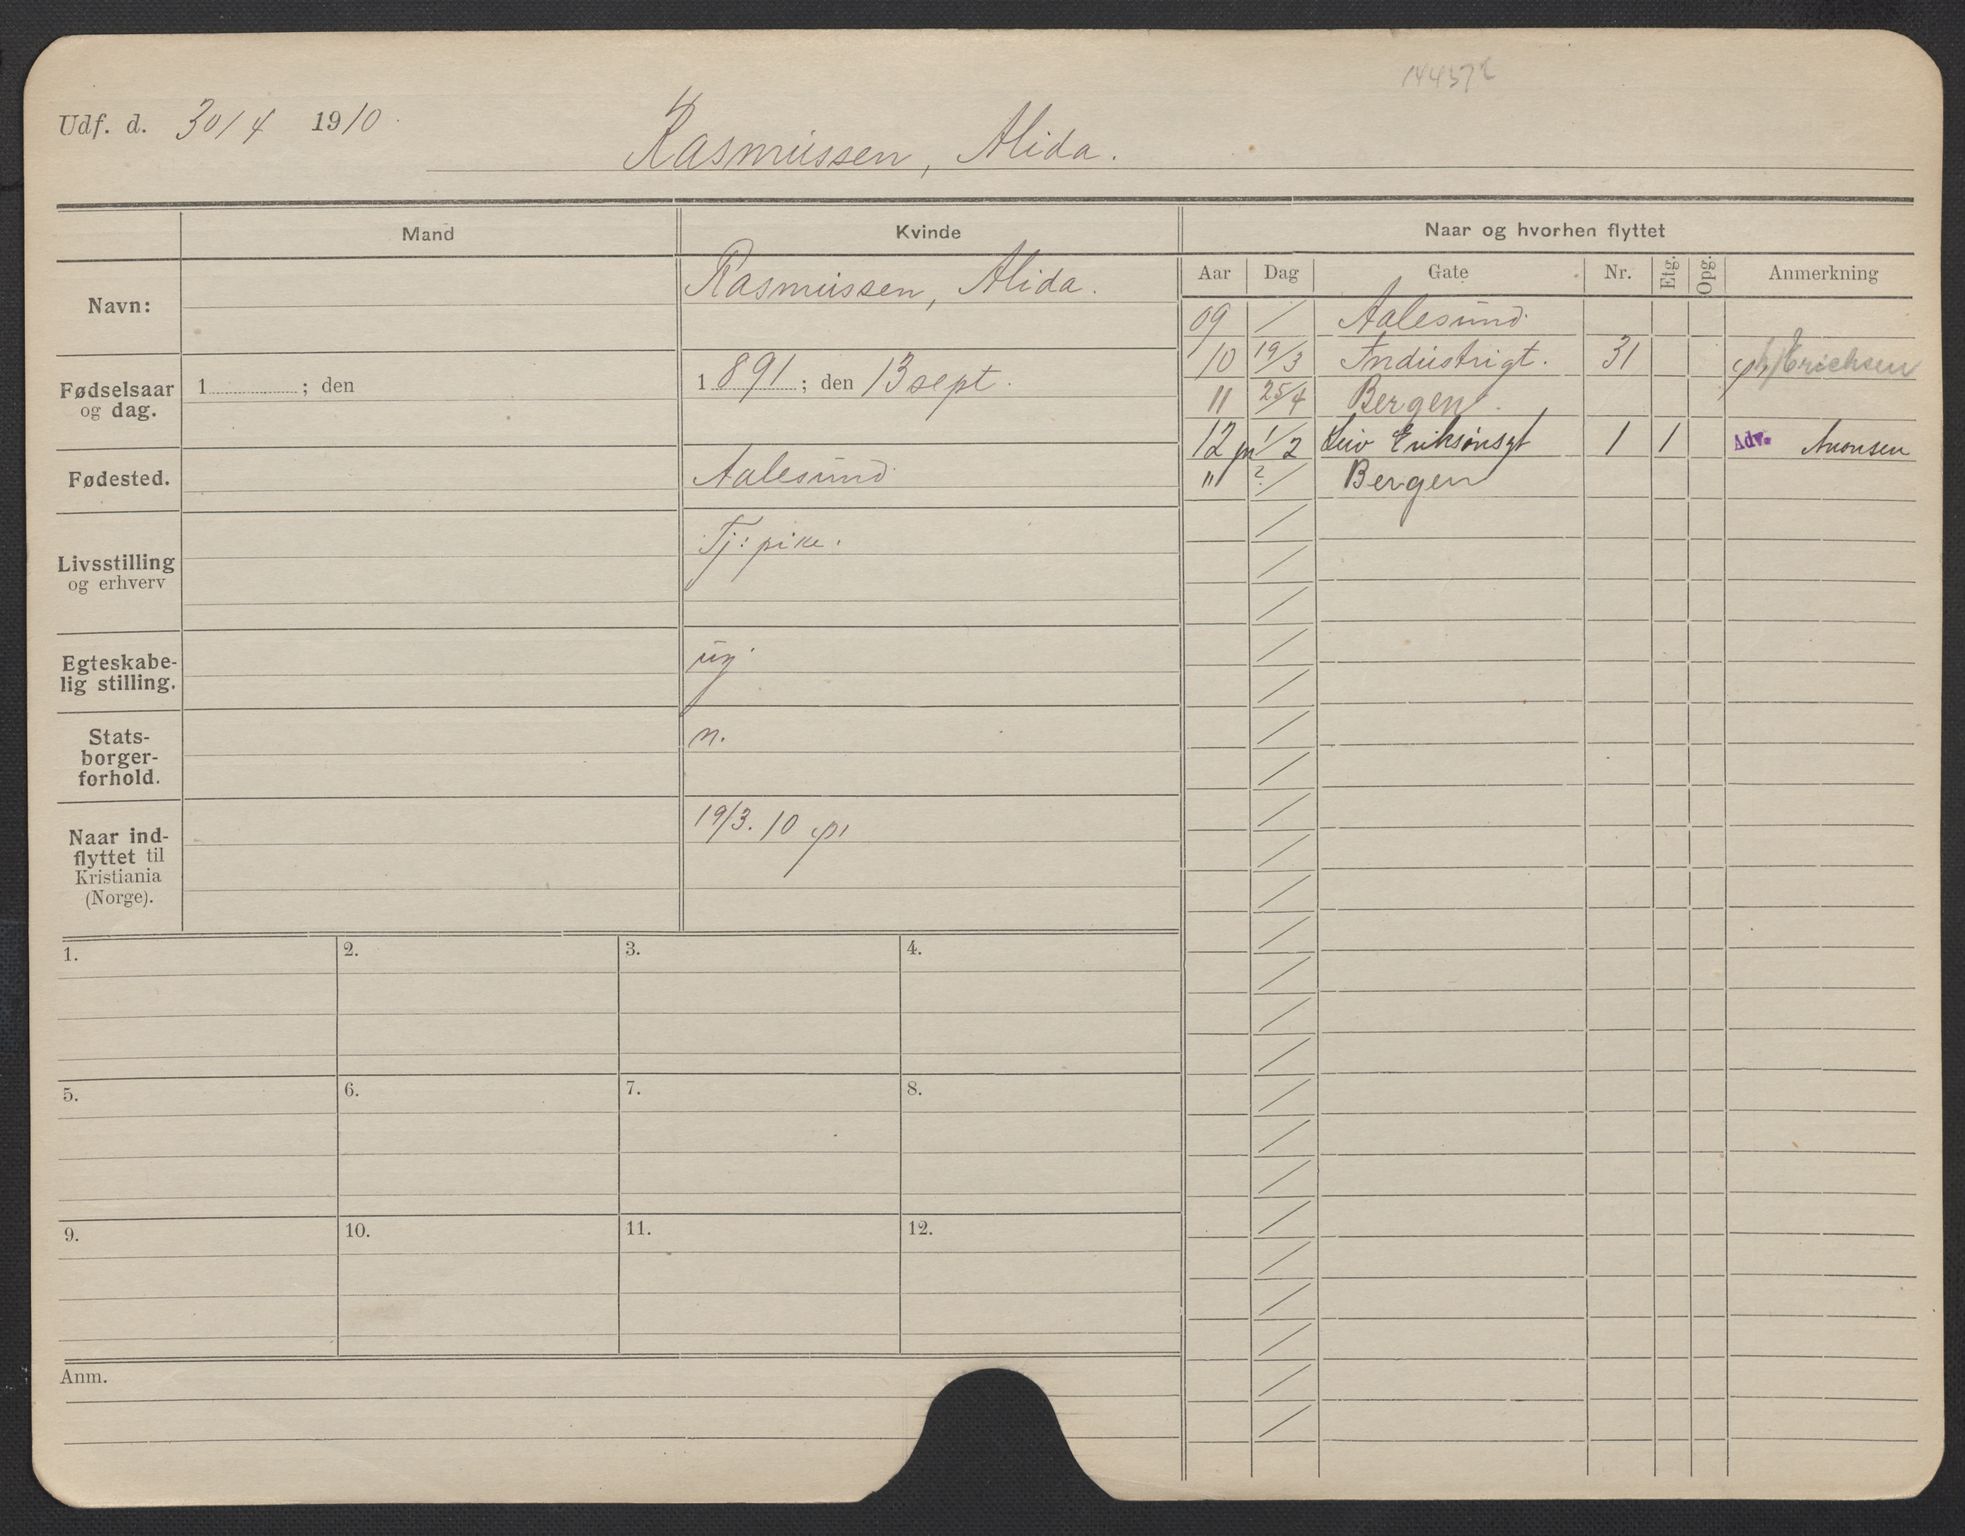 144372
Udf. d. 30/4 1910.
Rasmussen, Alida.
Mand
Kvinde
Naar og hvorhen flyttet
Navn:
Rasmussen, Alida.
Fødselsaar og dag.
1 ; den
1 891 ; den 13 sept.
Fødested.
Aalesund
Livsstilling og erhverv
Tj: pike.
Egteskabe-
lig stilling.
ug
Stats-
borger-
forhold.
n.
Naar ind-
flyttet til
Kristiania
(Norge).
19/3. 10
Aar Dag Gate Nr. Etg. Opg. Anmerkning
09 / Aalesund
10 19/3 Industrigt. 31 Erichsen
11 25/4 Bergen
12 1/2 Leiv Eriksønsgt 1 1 Adv.
" ?/ Bergen
1. 2. 3. 4.
5. 6. 7. 8.
9. 10. 11. 12.
Anm.